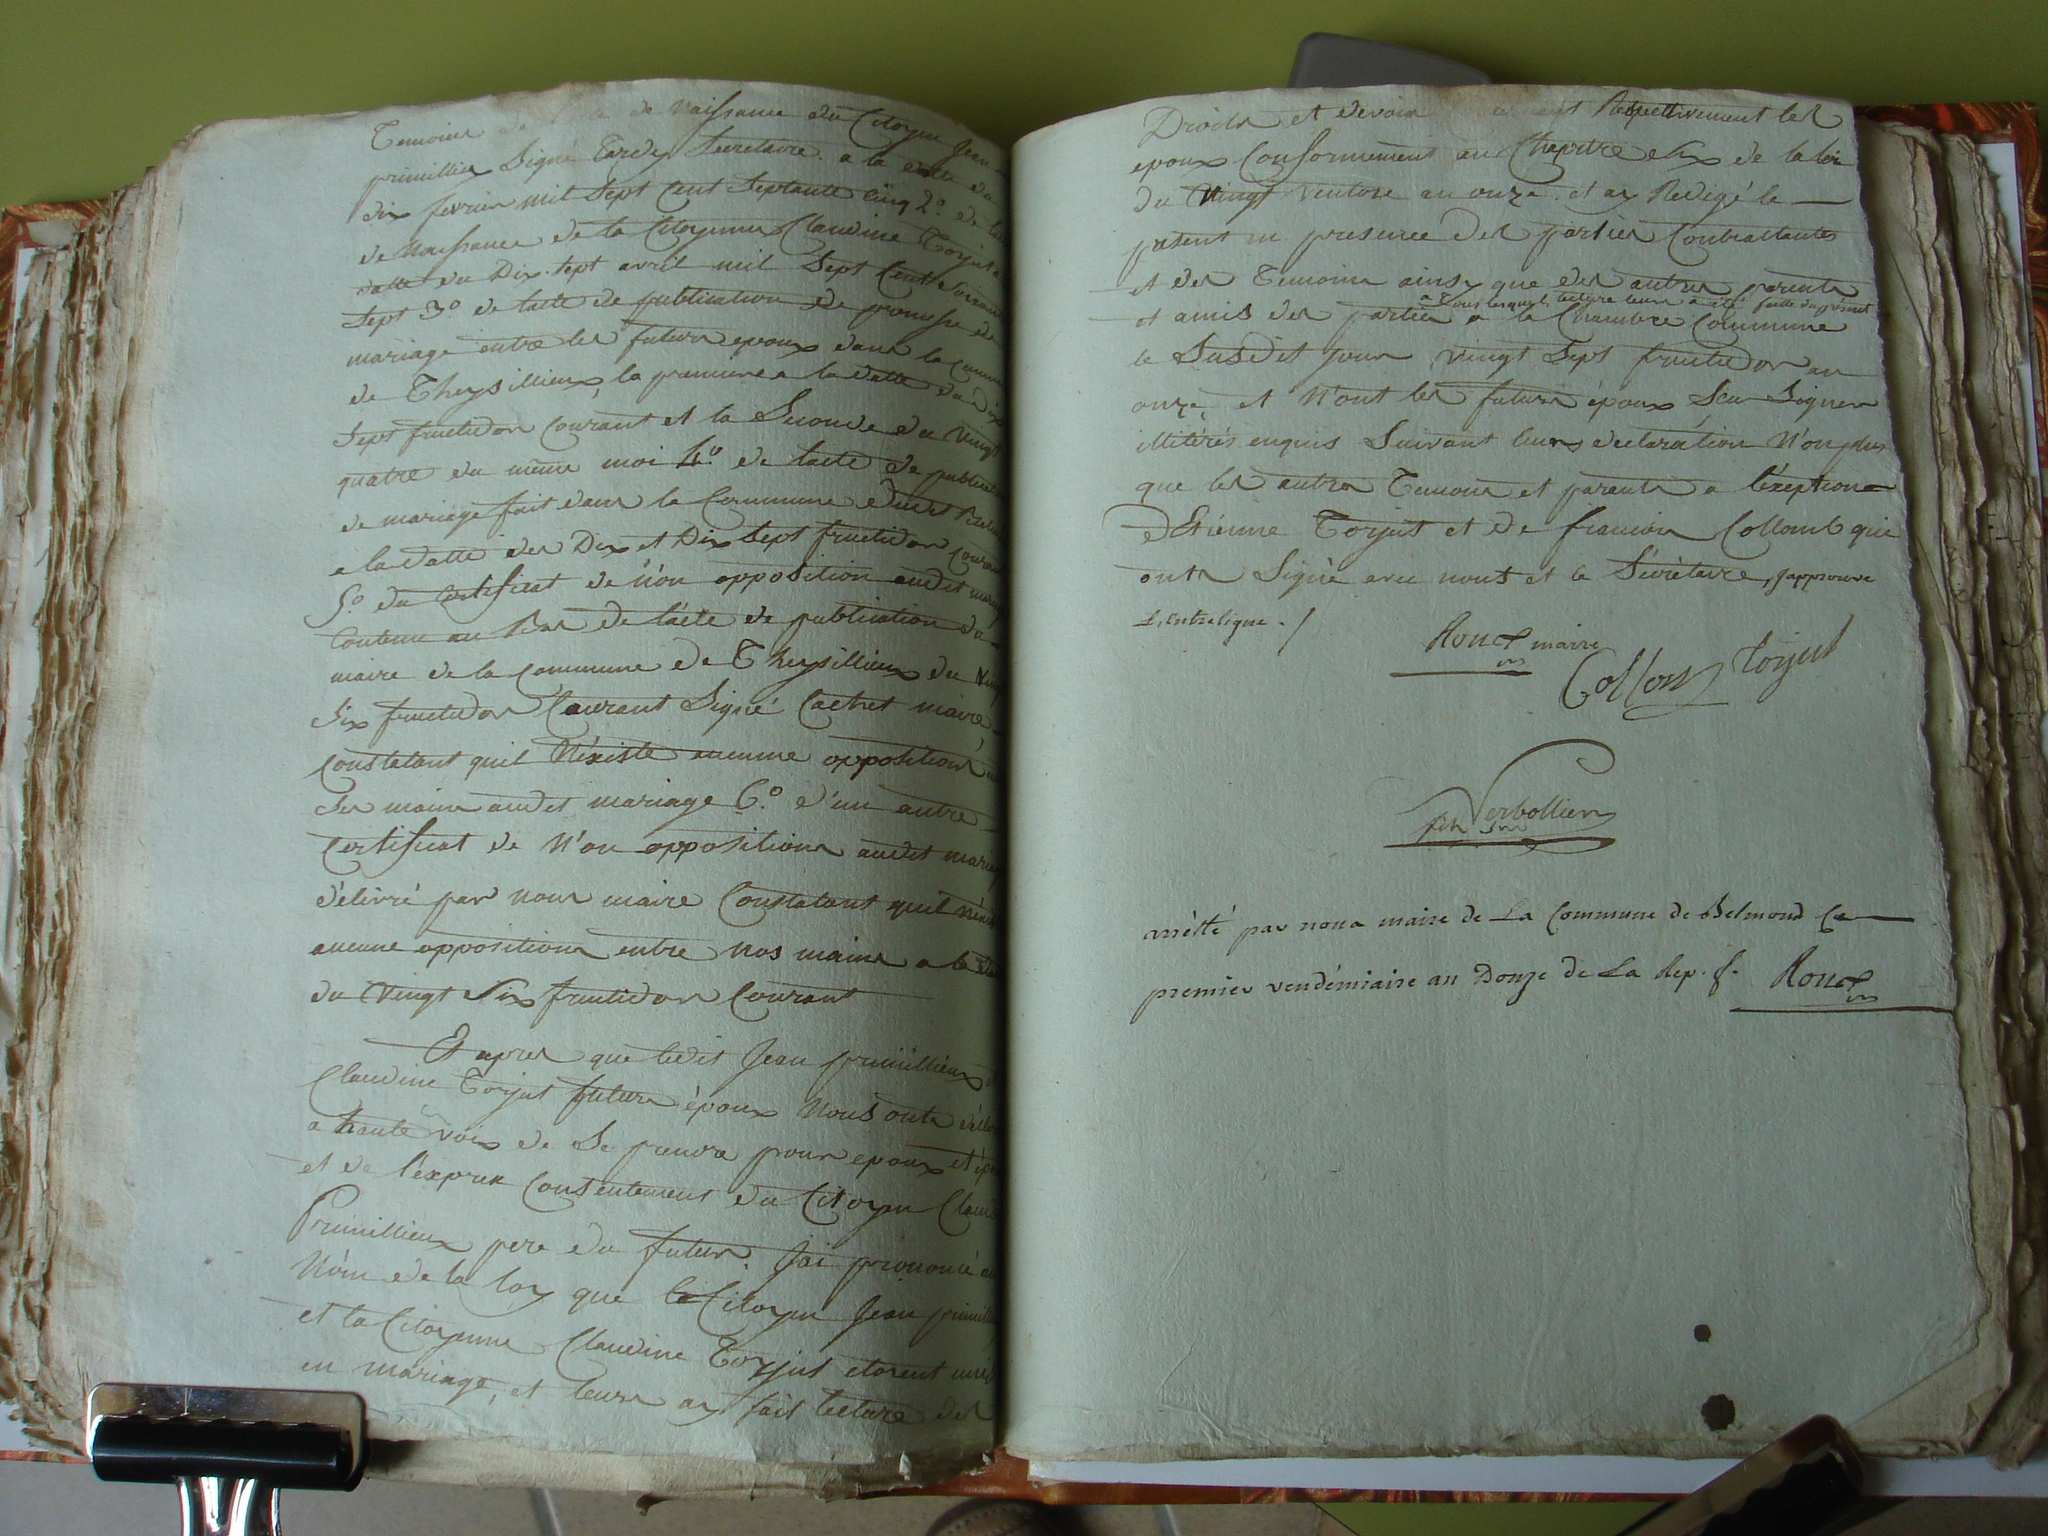 Temoins de l'acte de Naissance du Citoyen Jean
primillieu Signé Tardy Secretaire. a la datte du
dix fevrier mil Sept Cent Septante Cinq 2.° de lacte
de Naissance de la Citoyenne Claudine Torjut a
datte du Dix Sept avril mil Sept Cent Soixante
Sept 3.° de lacte de publication de promesse de
mariage entre les futurs epoux dans la Commune
de Theysillieu, la premiere a la datte du dix
Sept fructidor Courant et la Seconde du Vingt
quatre du même moi 4.° de lacte de publication
de mariage fait dans la Commune dudit
a la datte des Dix et Dix Sept fructidor courant
5.° du Certificat de N'on opposition audit mariage
Contenu au Bas de l'acte de publication du
maire de la Commune de Theysillieu du Vingt
Six fructidor Courant Signé Cachet maire,
Constatant quil N'éxiste aucunne opposition
Ses mains audit mariage 6.° d'un autre
Certificat de N'on opposition audit mariage
délivré par nous maire Constatant quil
aucune opposition entre Nos mains a la
du Vingt Six fructidor Courant
Et apres que ledit Jean primillieu et
Claudine Torjut futurs époux Nous onts
a haute voix de Se prendre pour epoux et
et de l'expres Consentement du Citoyen Claude
Primillieu pere du futur. Jai prononcé au
Nóm de la loy que le Citoyen Jean
et la Citoyenne Claudine Torjut etorent unis
en mariage, et leurs ay fait lecture des
Droits et devoirs Respectivement les
epoux Conformément au Chapitre six de la loi
du Vingt ventose an onze. et ay Redigé le
present en presence des parties Contractantes
et des Temoins ainsy que des autres parents
a tous lesquels lecture leurs a eté faitte du présent
et amis des parties a la Chambre Commune
le Susdit jour vingt Sept fructidor an
onze, et N'ont les futurs époux Scu Signer
illitérés enquis Suivant leurs declaration N'onplus
que les autres Temoins et parents a l'exeption
d'Etienne Torjut et de francois Collomb qui
onts Signé avec nous et le Sécrétaire, j'approuve
L'entreligne . /
Roux maire
Collon Torjut
Verbollier
arrétté par nous maire de La Commune de Belmond Ce
premier vendémiaire an Douze de La Rep. f. Roux